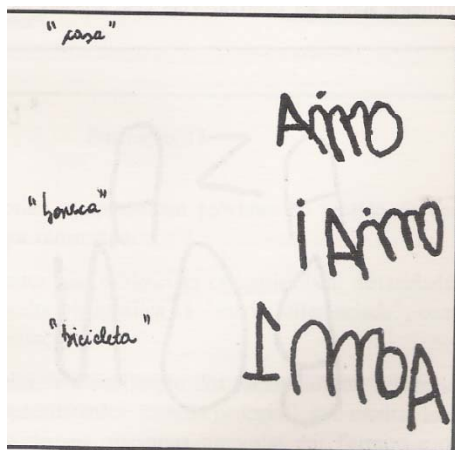 "casa"
Aimo
"boneca"
i Aimo
"bicicleta"
ImoA